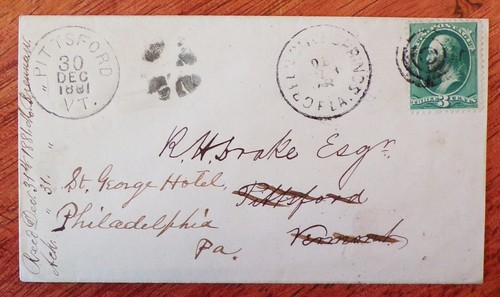 PITTSFORD
30
DEC
1881
VT.
GREEN COVE SPRINGS
FLA.
3 CENTS
R H Drake Esqr
St. George Hotel,
Pittsford
Philadelphia
Vermont
Pa.
Recd Dec. 31st 1881
Ack. " 31. "